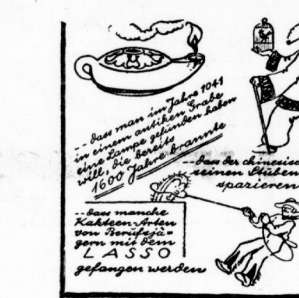 -- dass man im Jahre 1041
in einem antiken Grabe
eine Lampe gefunden haben
will, die bereits
1600 Jahre brannte
-- dass der chinesisc
seinen Stuben
spazieren
-- dass manche
Kakteen-Arten
von Berufsjä-
gern mit dem
LASSO
gefangen werden